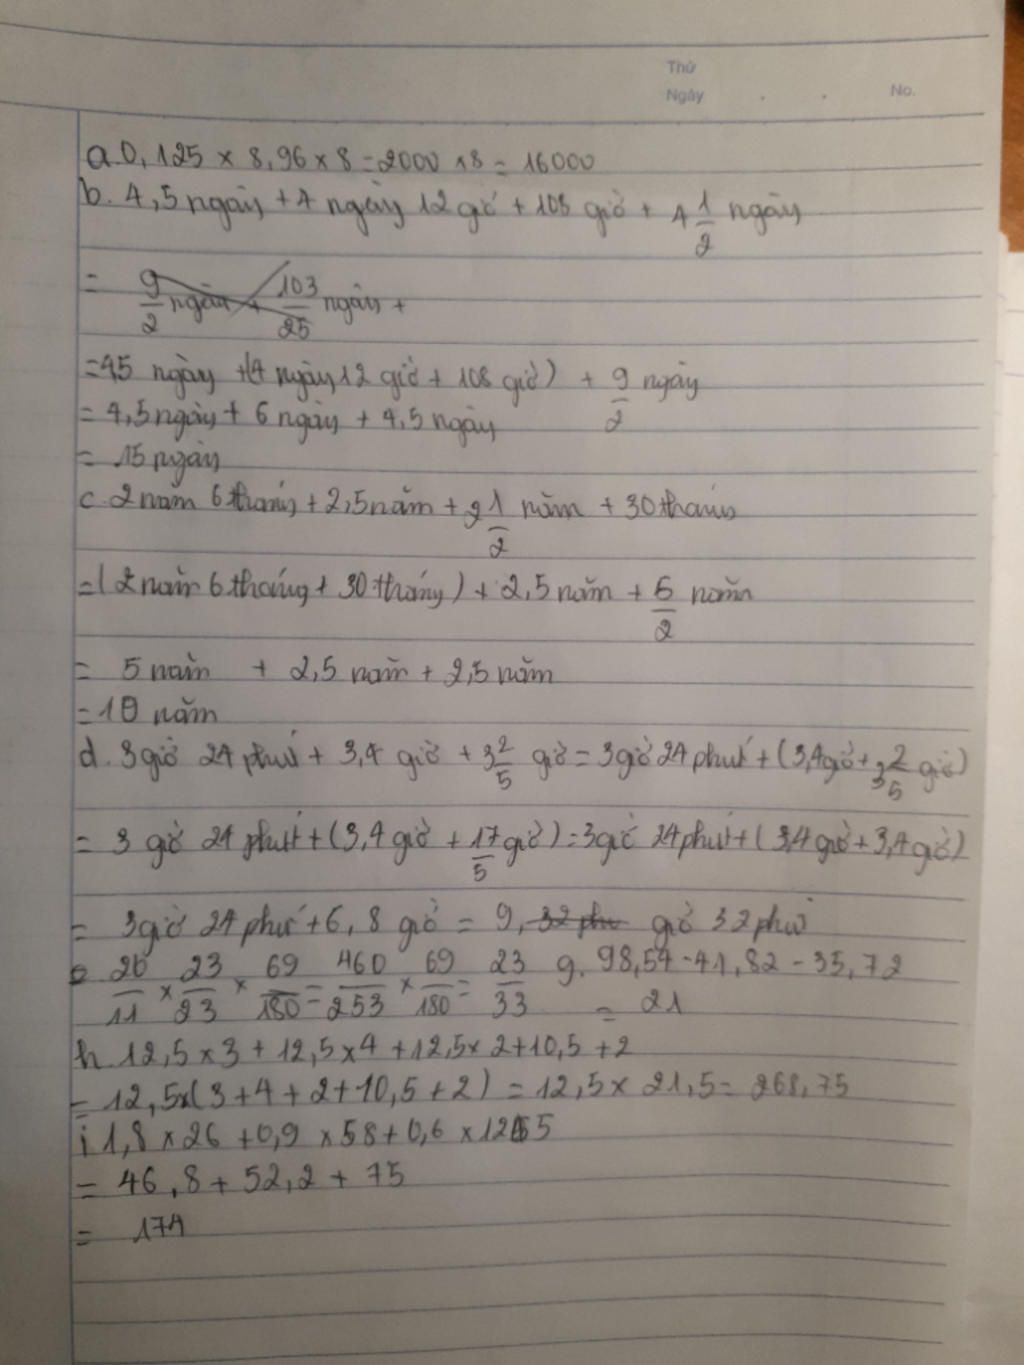 Thứ
Ngày . . No.
a. 0,125 × 8,96 × 8 = 2000 × 8 = 16000
b. 4,5 ngày + 4 ngày 12 giờ + 108 giờ + 4 1/2 ngày
= 9/2 ngày + 103/25 ngày +
= 4,5 ngày + (4 ngày 12 giờ + 108 giờ) + 9/2 ngày
= 4,5 ngày + 6 ngày + 4,5 ngày
= 15 ngày
c. 2 năm 6 tháng + 2,5 năm + 2 1/2 năm + 30 tháng
= (2 năm 6 tháng + 30 tháng) + 2,5 năm + 5/2 năm
= 5 năm + 2,5 năm + 2,5 năm
= 10 năm
d. 3 giờ 24 phút + 3,4 giờ + 3 2/5 giờ = 3 giờ 24 phút + (3,4 giờ + 3 2/5 giờ)
= 3 giờ 24 phút + (3,4 giờ + 17/5 giờ) = 3 giờ 24 phút + (3,4 giờ + 3,4 giờ)
= 3 giờ 24 phút + 6,8 giờ = 9, 32 phu giờ 32 phú
e 20/11 × 23/23 × 69/180 = 460/253 × 69/180 = 23/33 g. 98,54 - 41,82 - 35,72
= 21
h. 12,5 × 3 + 12,5 × 4 + 12,5 × 2 + 10,5 + 2
= 12,5 × (3 + 4 + 2 + 10,5 + 2) = 12,5 × 21,5 = 268,75
i 1,8 × 26 + 0,9 × 58 + 0,6 × 125
= 46,8 + 52,2 + 75
= 174